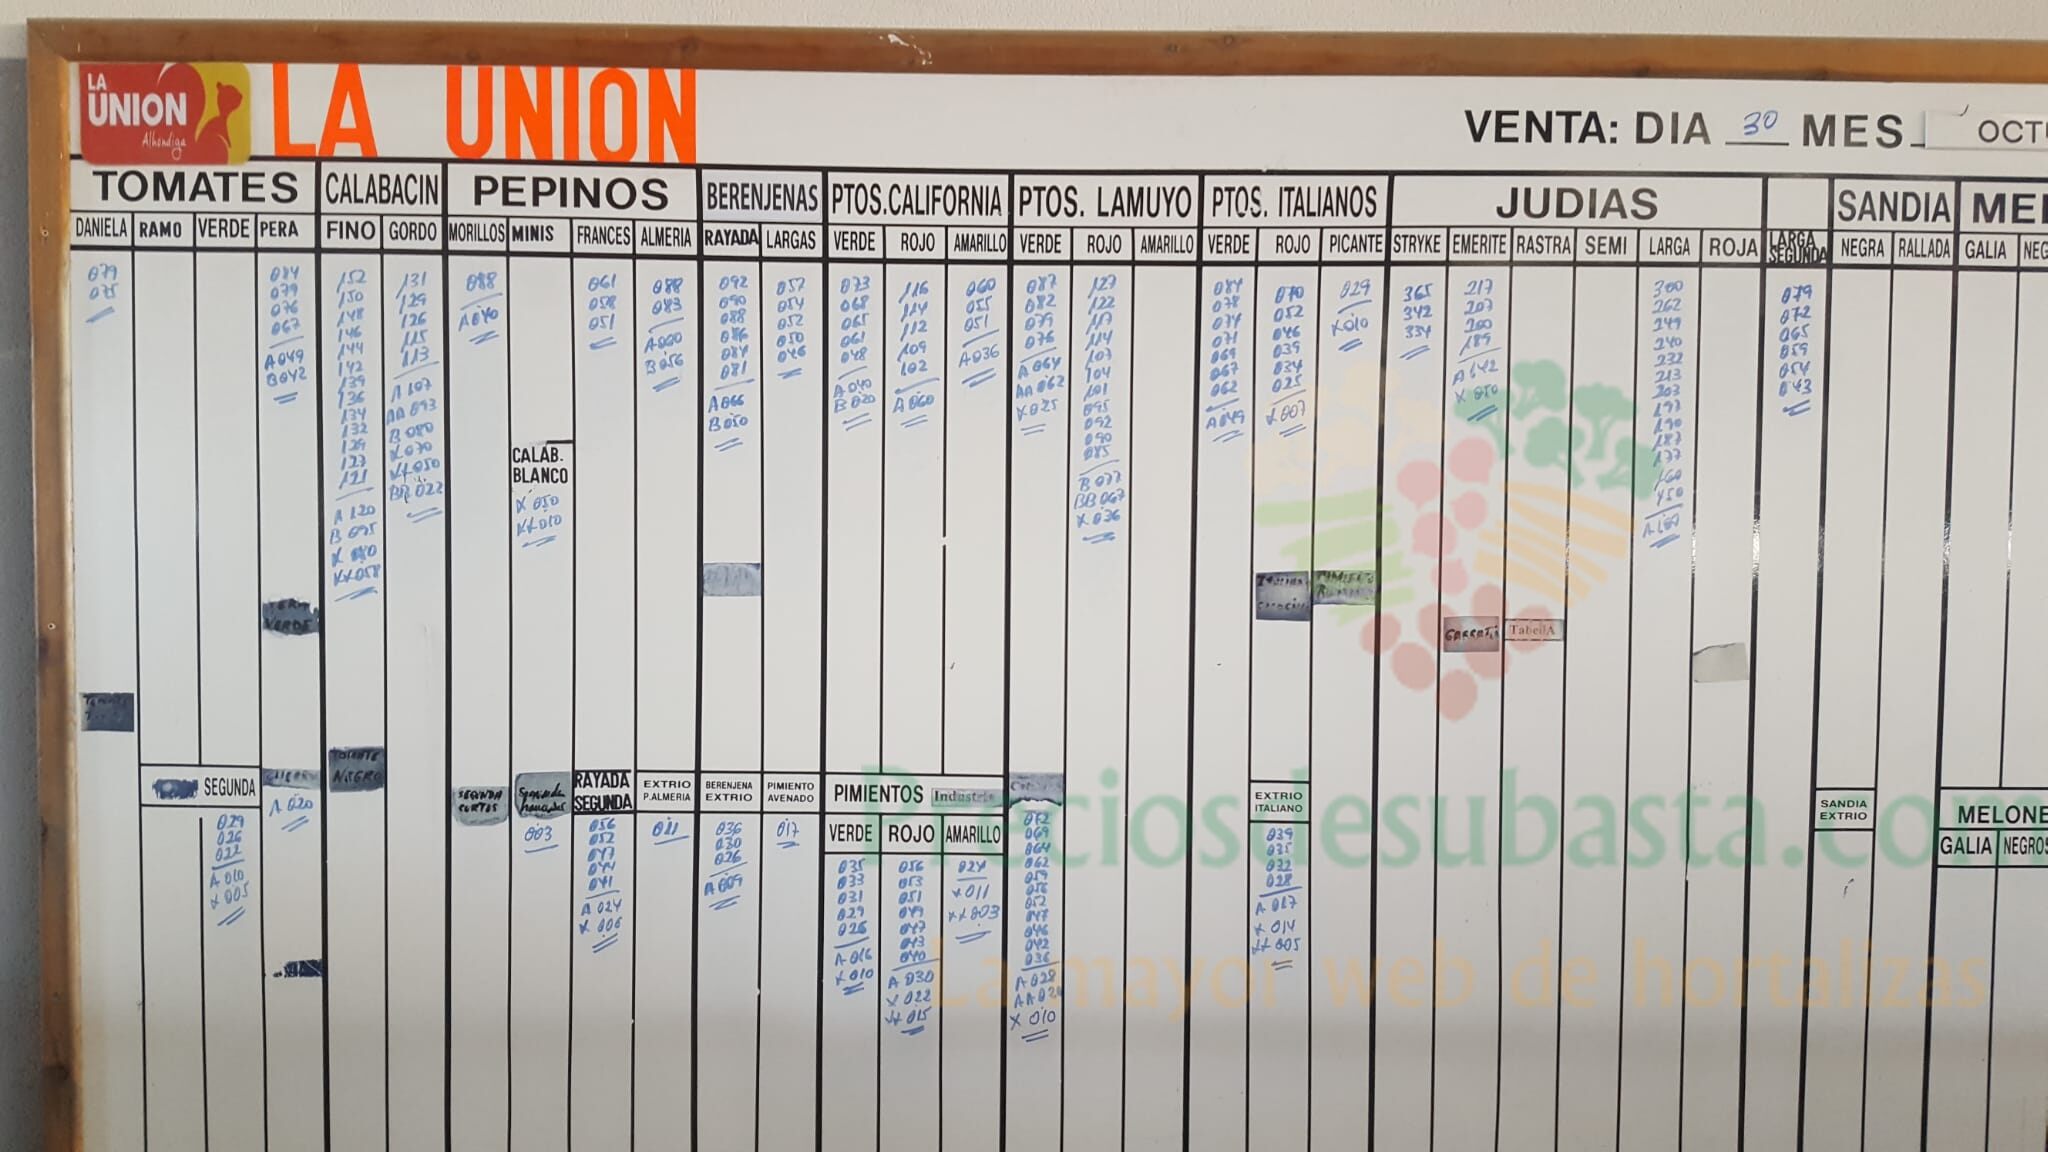 LA
UNION
Alhondiga
LA UNION
VENTA: DIA 30 MES OCTU
TOMATES CALABACIN PEPINOS BERENJENAS PTOS.CALIFORNIA PTOS. LAMUYO PTOS. ITALIANOS JUDIAS SANDIA
DANIELA RAMO VERDE PERA FINO GORDO MORILLOS MINIS FRANCES ALMERIA RAYADA LARGAS VERDE ROJO AMARILLO VERDE ROJO AMARILLO VERDE ROJO PICANTE STRYKE EMERITE RASTRA SEMI LARGA ROJA LARGA SEGUNDA NEGRA RALLADA GALIA
079
075
084
079
076
067
A 049
B 042
152
150
148
146
144
142
139
136
134
132
129
127
121
A 120
B 095
XX 058
131
129
126
115
113
A 107
AA 093
B 080
X 070
XX 050
BB 022
088
A 040
CALAB.
BLANCO
X 050
XX 010
061
058
051
088
083
A 060
B 056
092
090
088
086
084
081
A 066
B 050
057
054
052
050
046
073
068
065
061
048
A 040
B 020
116
114
112
109
102
A 060
060
055
051
A 036
087
082
079
076
A 064
AA 062
X 025
127
122
117
114
107
104
101
095
092
090
085
B 077
BB 067
X 036
084
078
074
071
069
067
062
A 049
070
052
046
039
034
025
X 007
029
X 010
365
342
334
217
207
200
189
A 142
X 050
300
262
249
240
232
213
203
197
190
187
177
160
150
A 109
079
072
065
059
054
043
VERDE
TabellA
SEGUNDA
029
026
022
A 010
X 005
A 020
TOMATE
NEGRO
SEGUNDA
CORTOS
003
RAYADA
SEGUNDA
056
052
047
044
041
A 024
X 006
EXTRIO
P.ALMERIA
011
BERENJENA
EXTRIO
036
030
026
A 009
PIMIENTO
AVENADO
017
PIMIENTOS Industria
VERDE ROJO AMARILLO
035
033
031
029
026
A 016
X 010
056
053
051
049
047
043
040
A 030
X 022
XX 015
024
X 011
XX 003
072
069
064
062
059
056
052
047
046
042
036
A 028
X 010
EXTRIO
ITALIANO
039
035
032
028
A 017
X 014
XX 005
SANDIA
EXTRIO
MELONE
GALIA NEGROS
Preciosdesubasta.com
La mayor web de hortalizas